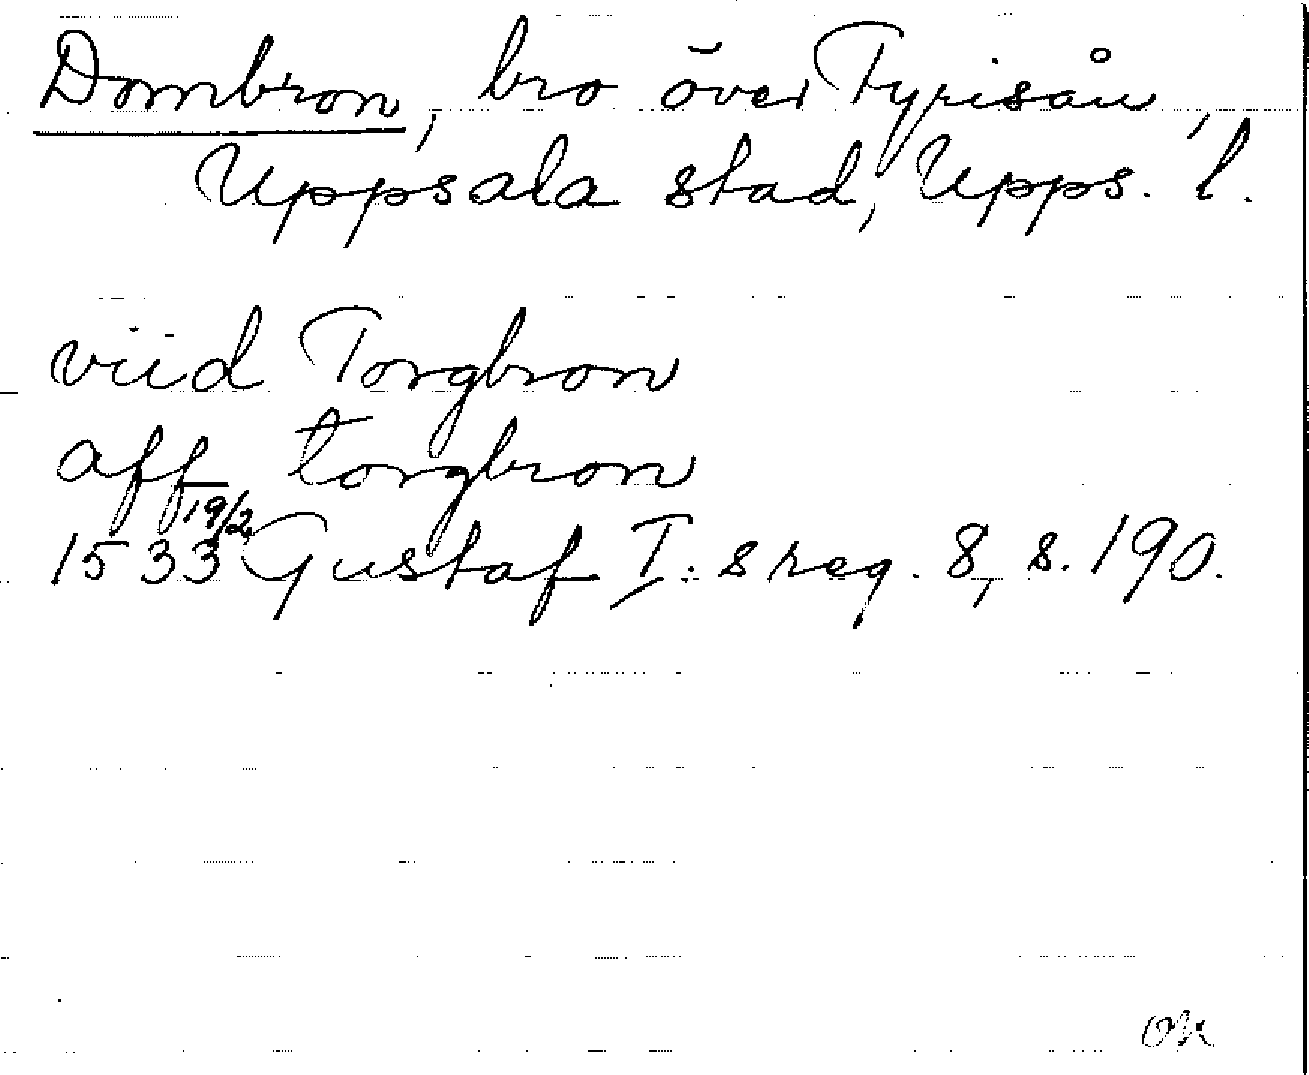 Dombron, bro över Tyrisån,
Uppsala stad, Upps. l.
viid Torgbron
aff torgbron
1533 19/2 Gustaf I:s reg. 8, s. 190.
OK